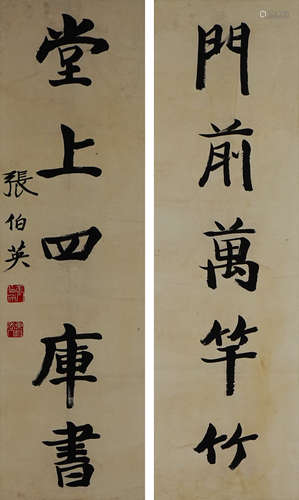 門前萬竿竹
堂上四庫書
張伯英